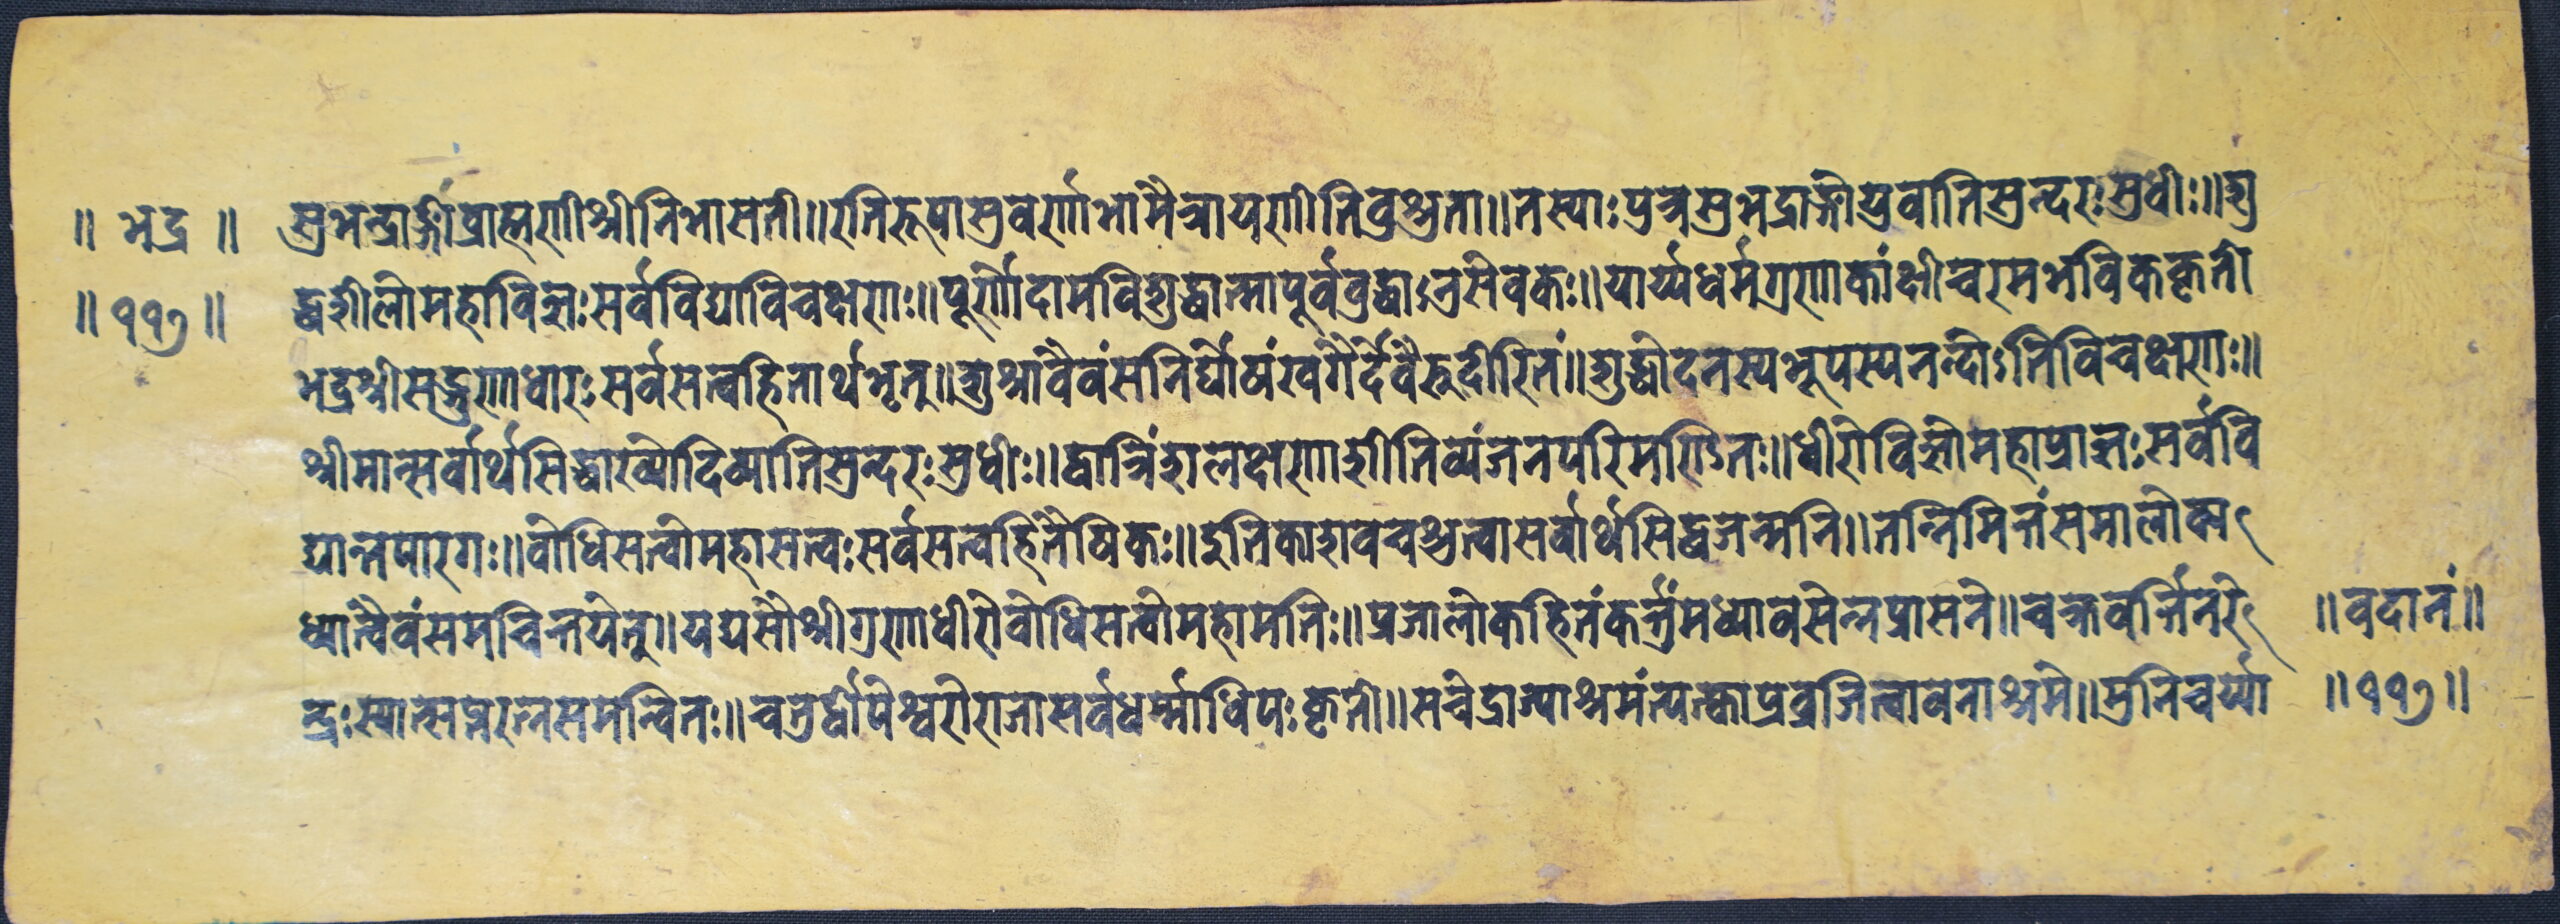 ॥ भद्र ॥ सुभन्द्राङ्गीप्राह्मणीश्रीनिभासती॥रतिरूपासुवर्णाभामैत्रायणीतिवुश्रुता॥तस्याःपुत्रसुभद्राङ्गीयुवातिसुन्दरःसुधीः॥शु
॥ ११७ ॥ द्धशीलोमहाविज्ञःसर्वविद्याविचक्षणः॥पूर्णोदामविशुद्धात्मापूर्वबुद्धाऽनुसेवकः॥यार्य्यधर्मगुणाकांक्षीचरमभविककृती
भद्रश्रीसद्गुणाधारःसर्वसत्वहितार्थभृत्॥शुश्रावैवंसनिर्घोषंखगैर्देवैरुदीरितं॥शुद्धोदनस्यभूपस्यनन्दोऽतिविचक्षणः॥
श्रीमान्सर्वार्थसिद्धाख्योदिव्यातिसुन्दरःसुधीः॥द्वात्रिंशलक्षणाशीतिव्यंजनपरिमण्डितः॥धीरोविज्ञोमहाप्राज्ञःसर्ववि
द्यान्तपारगः॥वोधिसत्वोमहासत्वःसर्वसत्वहितैषिकः॥इतिकाशवचश्रुत्वासर्वार्थसिद्धजन्मनि॥तन्निमित्तंसमालोक्य
ध्यात्वैवंसमचिन्तयेत्॥यद्यसौश्रीगुणाधीरोवोधिसत्वोमहामतिः॥प्रजालोकहितंकर्त्तुंमध्यावसेन्नपासने॥चक्रवर्त्तिनरे ॥वदानं॥
न्द्रःस्यात्सप्तरत्नसमन्वितः॥चतुर्द्धीपेश्वरोराजासर्वधर्म्माधिपःकृती॥सचेद्राज्याश्रमंत्यक्त्वाप्रव्रजित्वावनाश्रमे॥मुनिचर्य्या ॥११७॥